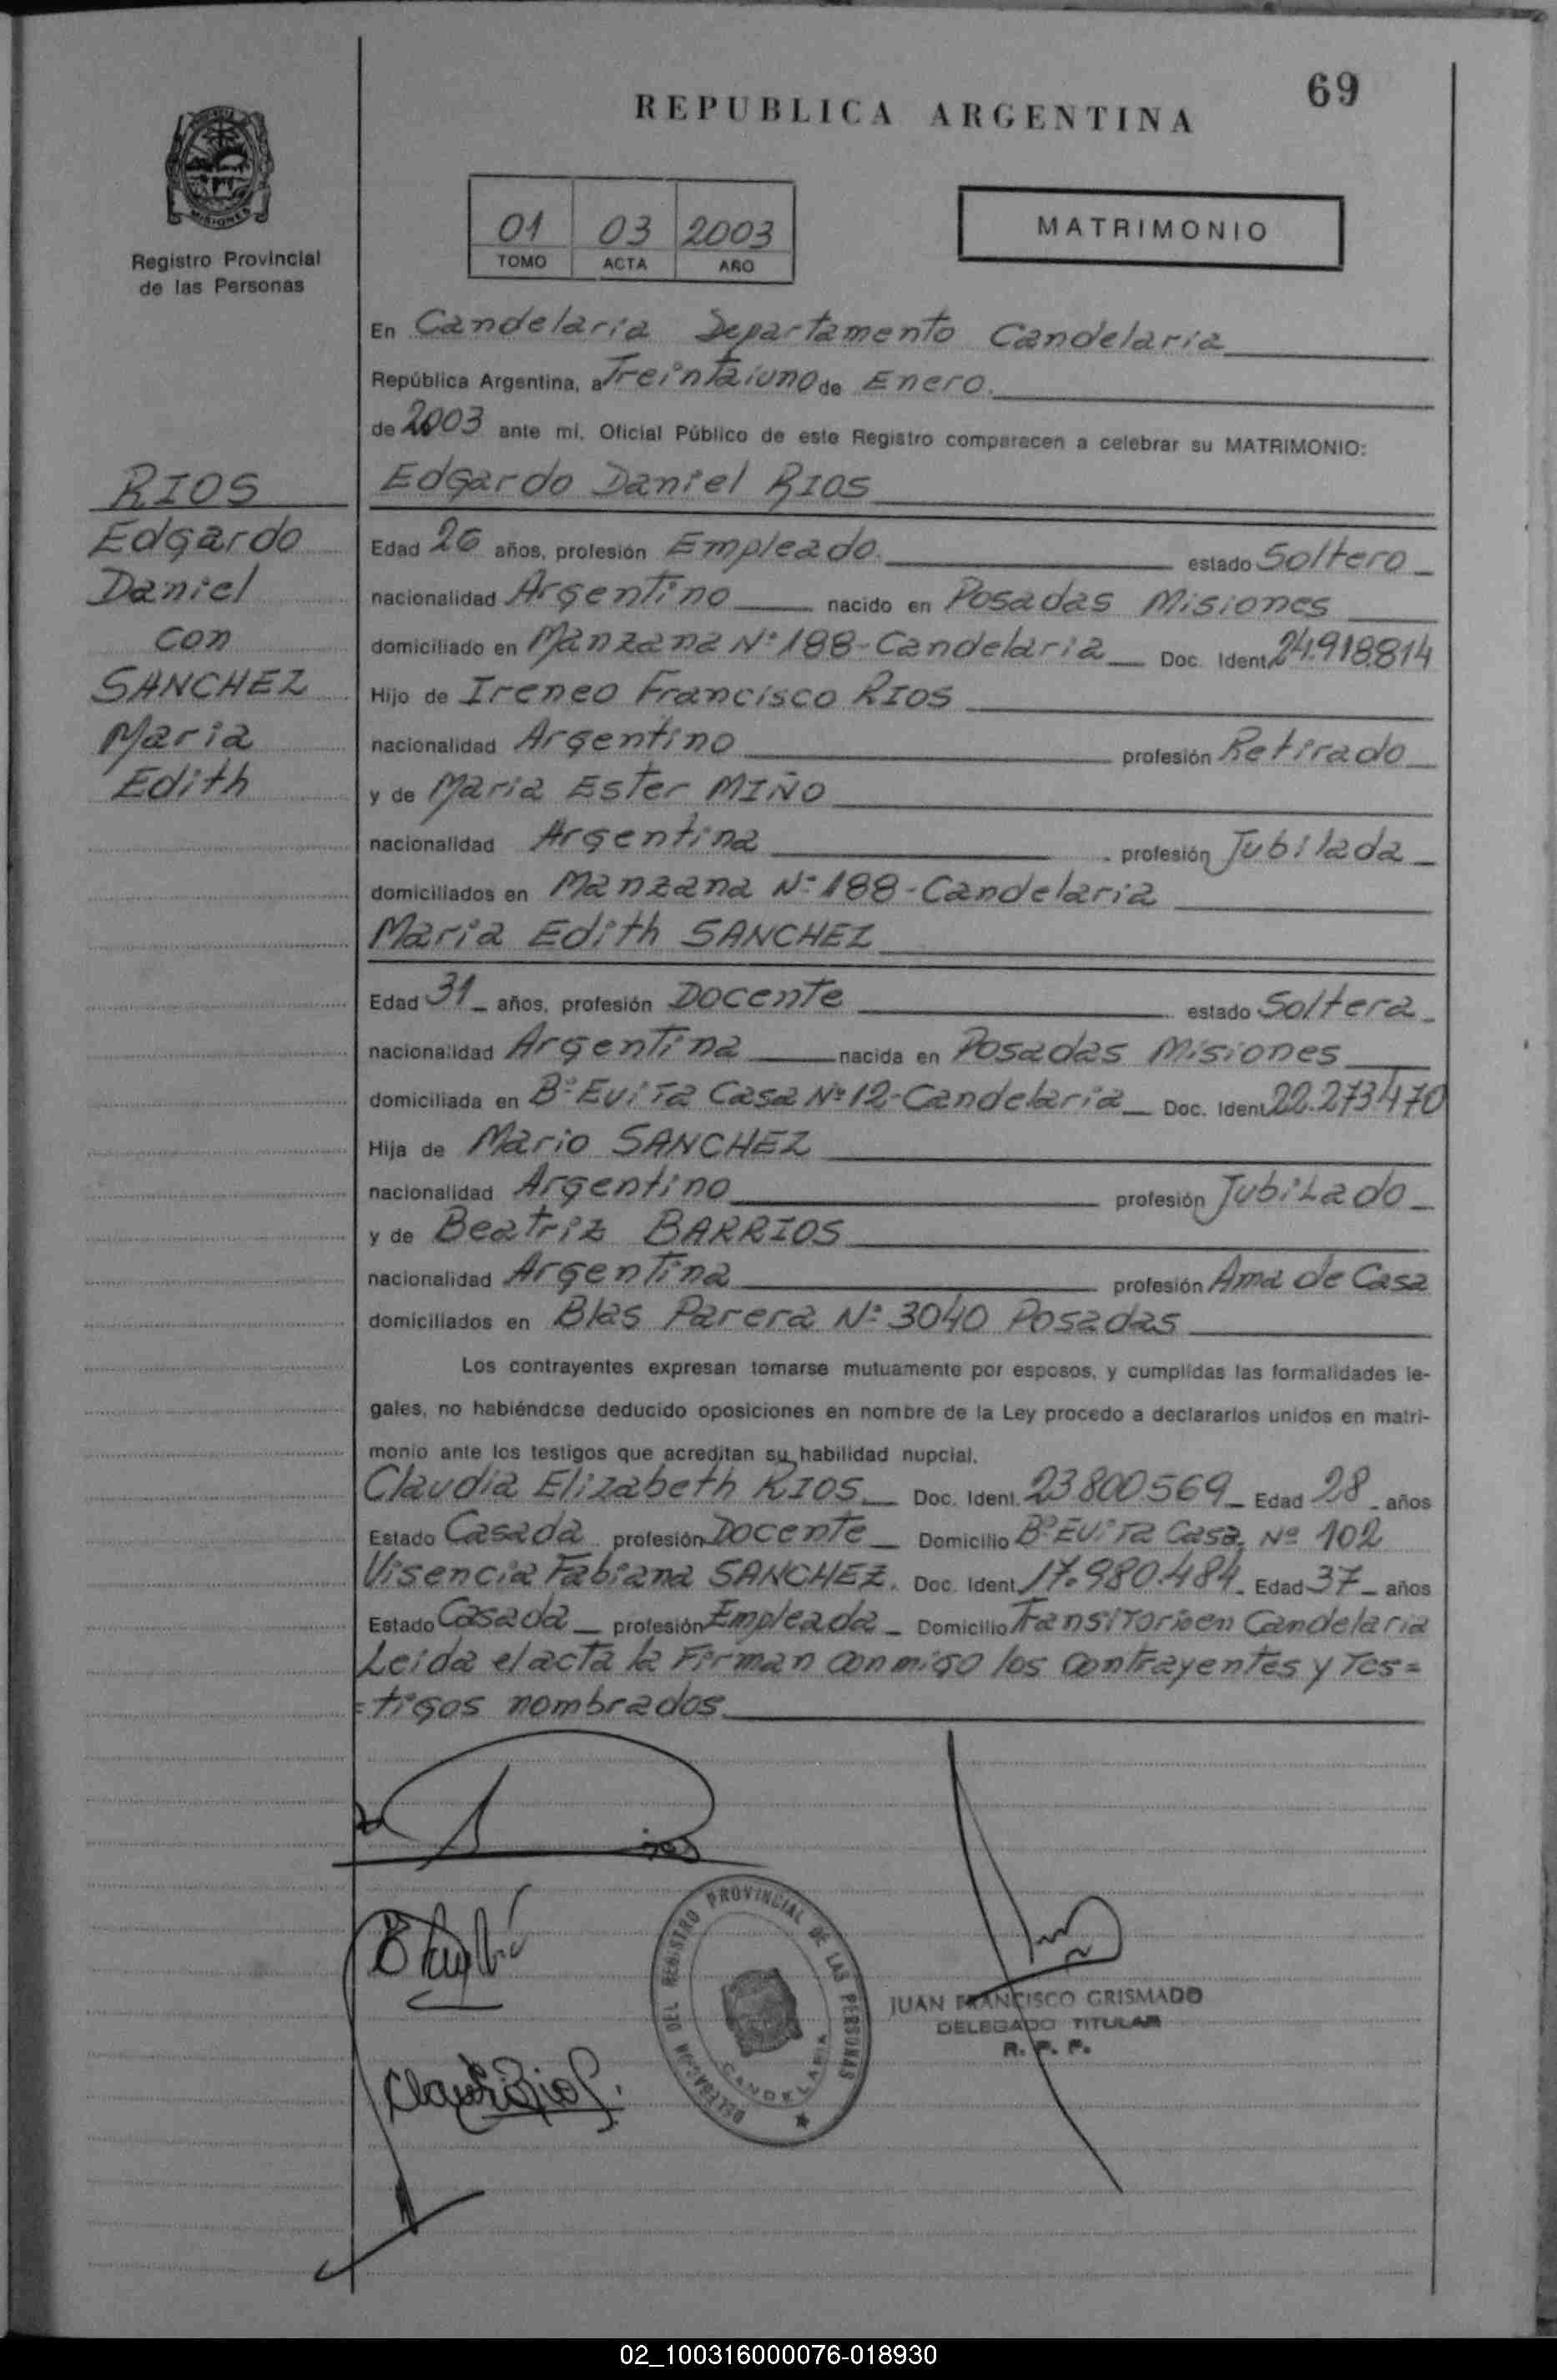 69
REPUBLICA ARGENTINA
MISIONES
Registro Provincial
de las Personas
01 03 2003
TOMO ACTA AÑO
MATRIMONIO
En Candelaria Departamento Candelaria
República Argentina, a Treintaiuno de Enero.
de 2003 ante mí, Oficial Público de este Registro comparecen a celebrar su MATRIMONIO:
RIOS
Edgardo
Daniel
con
SANCHEZ
Maria
Edith
Edgardo Daniel RIOS
Edad 26 años, profesión Empleado. estado Soltero
nacionalidad Argentino nacido en Posadas Misiones
domiciliado en Manzana Nº 188-Candelaria Doc. Ident. 24.918.814
Hijo de Ireneo Francisco RIOS
nacionalidad Argentino profesión Retirado
y de Maria Ester MIÑO
nacionalidad Argentina profesión Jubilada
domiciliados en Manzana Nº 188-Candelaria
Maria Edith SANCHEZ
Edad 31 años, profesión Docente estado Soltera
nacionalidad Argentina nacida en Posadas Misiones
domiciliada en Bº Evita Casa Nº 12-Candelaria Doc. Ident. 22.273.470
Hija de Mario SANCHEZ
nacionalidad Argentino profesión Jubilado
y de Beatriz BARRIOS
nacionalidad Argentina profesión Ama de Casa
domiciliados en Blas Parera Nº 3040 Posadas
Los contrayentes expresan tomarse mutuamente por esposos, y cumplidas las formalidades le-
gales, no habiéndose deducido oposiciones en nombre de la Ley procedo a declararlos unidos en matri-
monio ante los testigos que acreditan su habilidad nupcial.
Claudia Elizabeth RIOS Doc. Ident. 23800569 Edad 28 años
Estado Casada profesión Docente Domicilio Bº Evita Casa Nº 102
Visencia Fabiana SANCHEZ. Doc. Ident. 17.980.484 Edad 37 años
Estado Casada profesión Empleada Domicilio Transitorio en Candelaria
Leida el acta la Firman conmigo los contrayentes y Tes=
=tigos nombrados
DELEGACION DEL REGISTRO PROVINCIAL DE LAS PERSONAS
CANDELARIA
JUAN FRANCISCO GRISMADO
DELEGADO TITULAR
R. P. P.
02_100316000076-018930